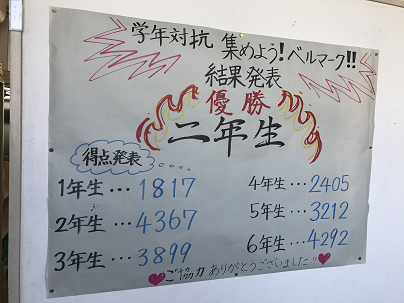 学年対抗 集めよう!ベルマーク!!
結果発表
優勝
二年生
得点発表
1年生…1817
2年生…4367
3年生…3899
4年生…2405
5年生…3212
6年生…4292
ご協力 ありがとうございました!!